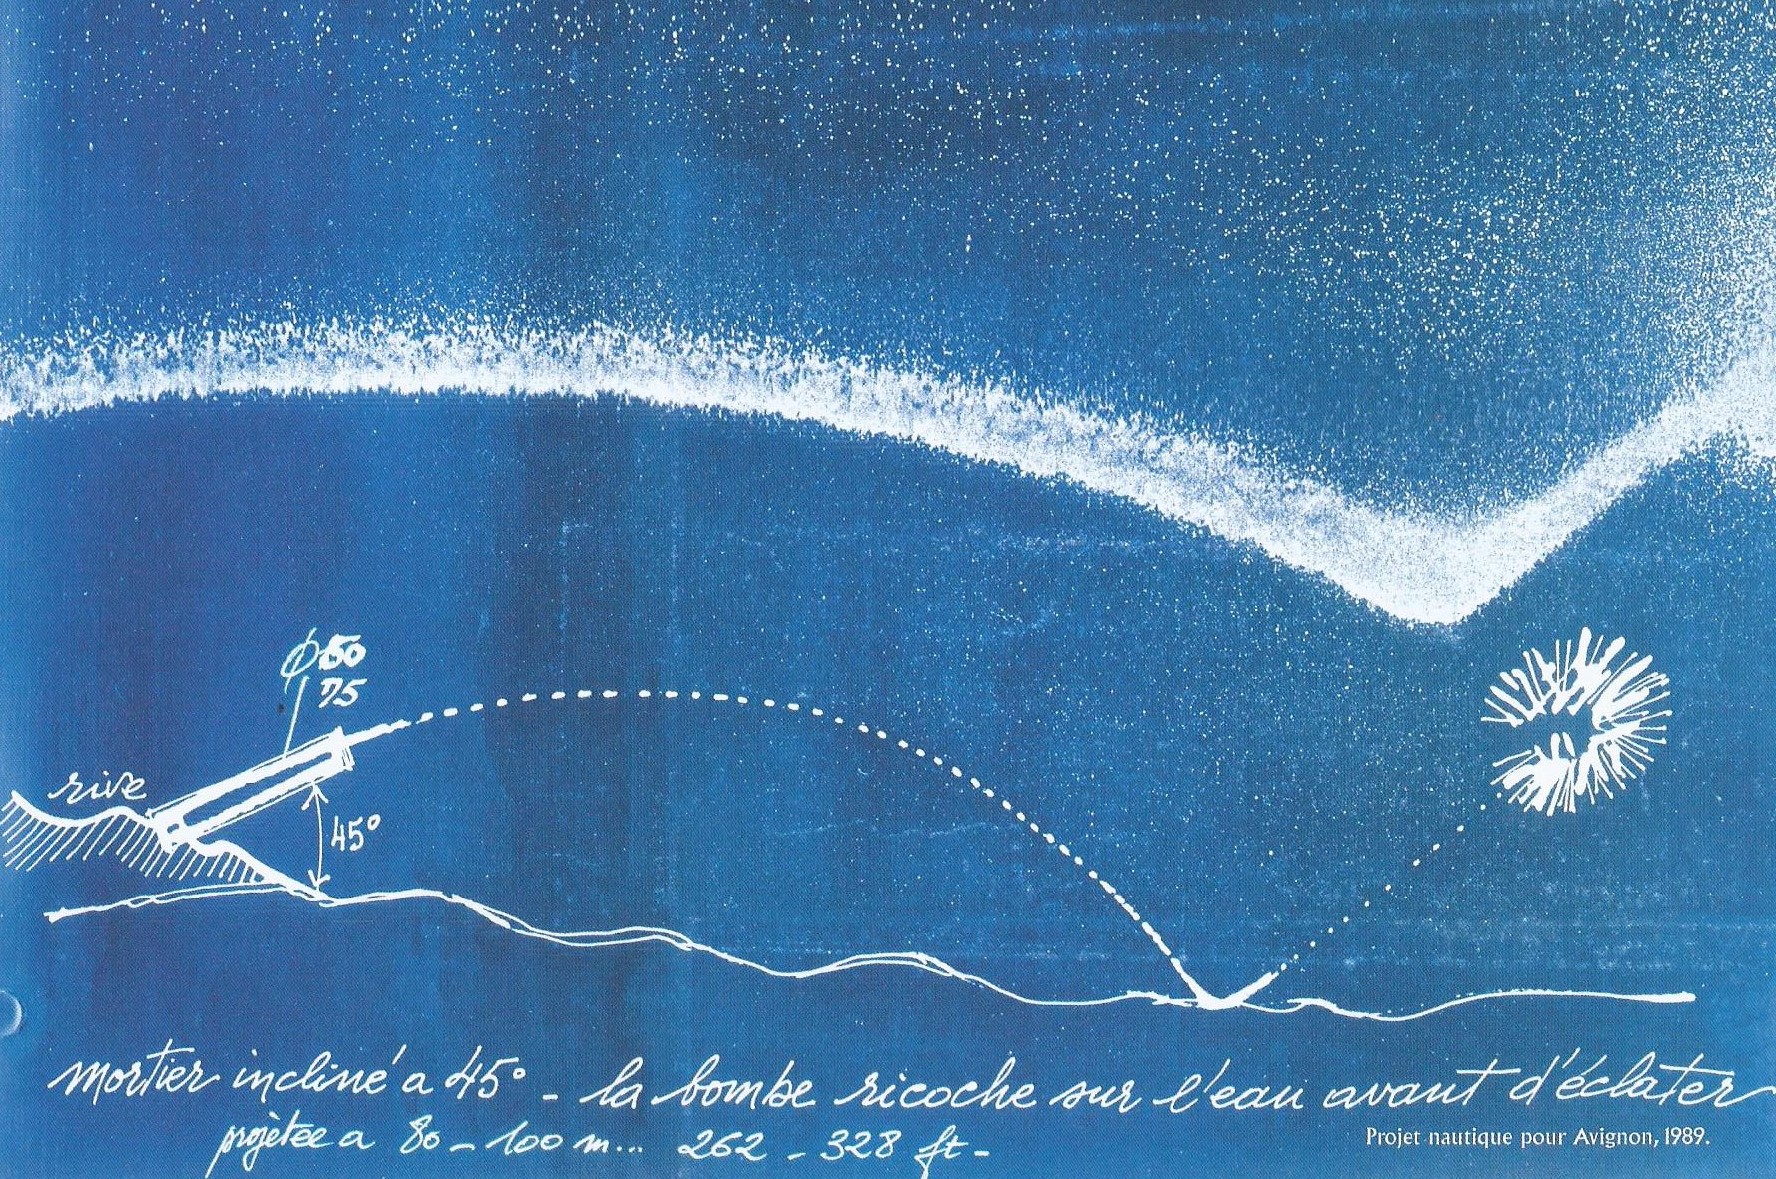 ϕ 50
75
rive
45°
mortier incliné a 45° - la bombe ricoche sur l'eau avant d'éclater
projetée a 80 - 100 m... 262 - 328 ft -
Projet nautique pour Avignon, 1989.